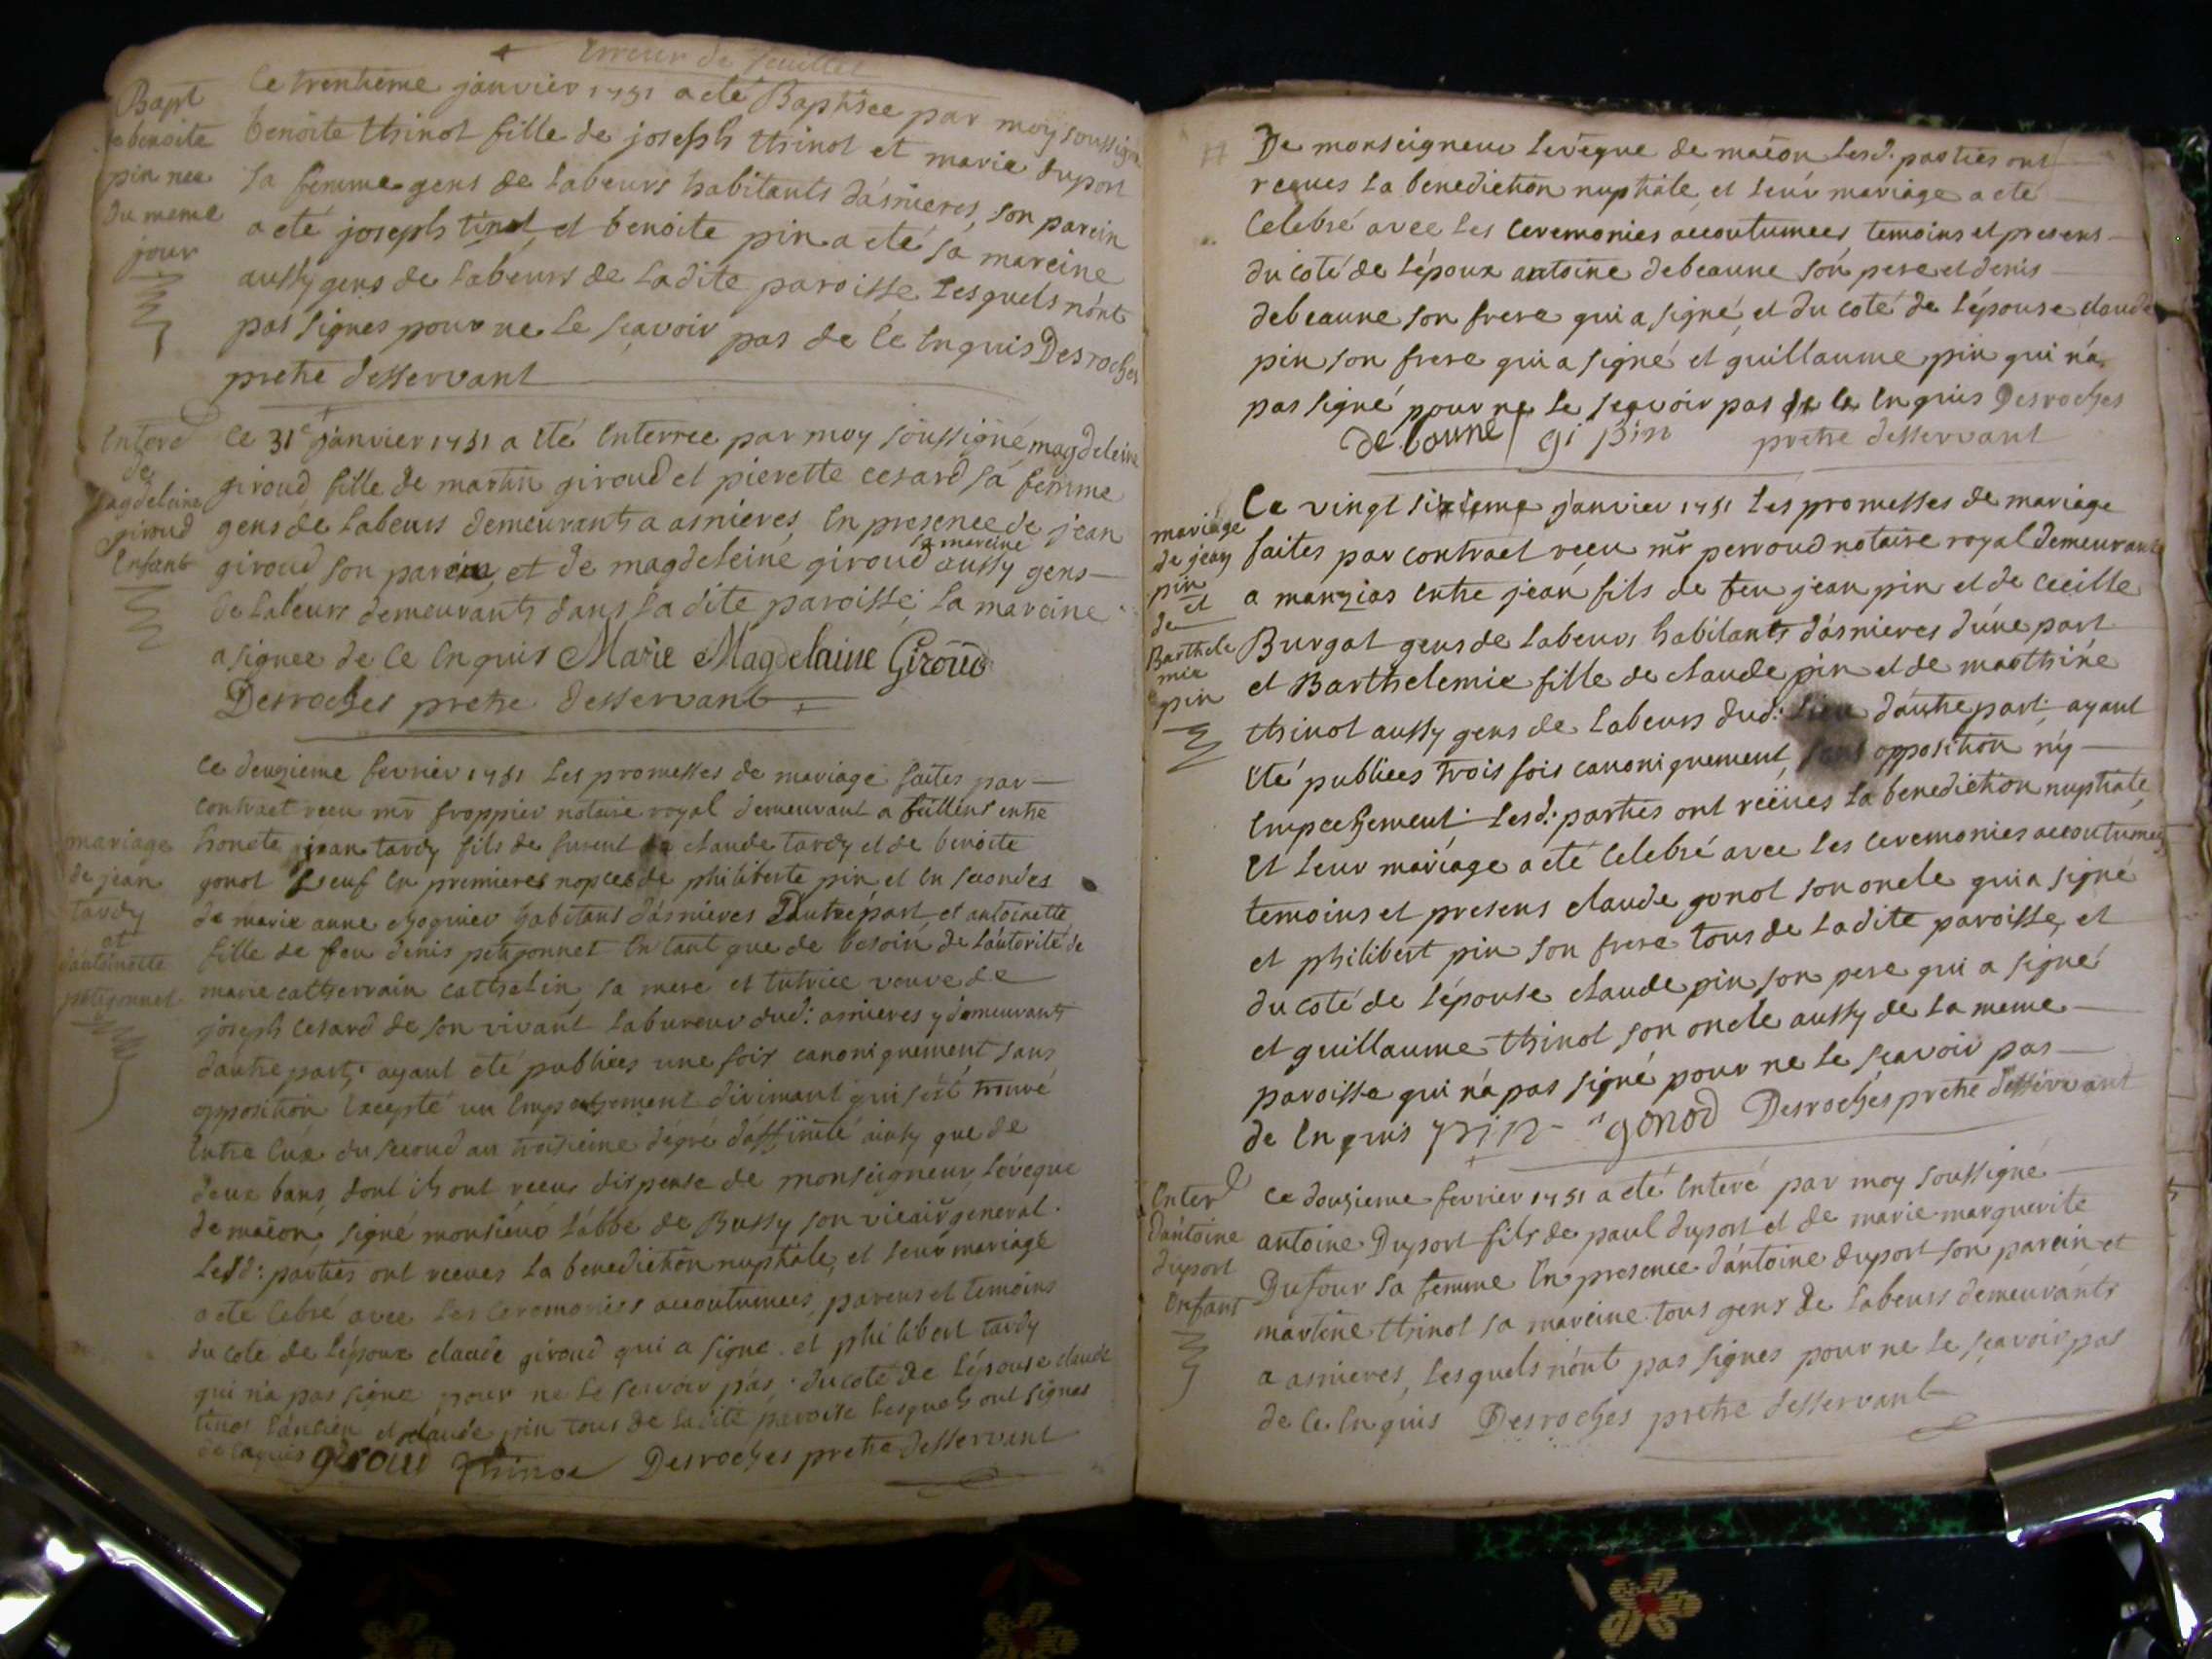 Erreur de feuillet
Bapt
de benoite
pin nee
du meme
jour
Le trentieme janvier 1751 a eté Baptisee par moy soussigné
benoite thinot fille de joseph thinot et marie duport
sa femme gens de labeurs habitants d'asnieres, son parein
a eté joseph tinot et benoite pin a eté sa mareine
aussy gens de labeurs de ladite paroisse lesquels n'ont
pas signes pour ne le sçavoir pas de ce enquis Desroches
pretre desservant
Enterd
de
magdeleine
giroud
Enfant
Ce 31e janvier 1751 a eté Enterree par moy soussigné magdeleine
giroud fille de martin giroud et pierette cesard sa femme
gens de labeurs demeurants a asnieres, en presence de jean
giroud son parein, et de magdeleine giroud sa mareine aussy gens
de labeurs demeurants dans ladite paroisse, la mareine
a signee de ce enquis Marie Magdelaine Giroud
Desroches pretre desservant
mariage
de jean
tardy
et
d'antoinette
petigonnet
Ce deuzieme fevrier 1751 les promesses de mariage faites par
contract receu mr froppier notaire royal demeurant a entre
honete jean tardy fils de furent claude tardy et de benoite
gonot veuf en premieres nopces de philiberte pin et en secondes
de marie anne habitant d'asnieres D'autre part, et antoinette
fille de feu denis petigonnet en tant que de besoin de l'autorité de
marie cathelin sa mere et tutrice veuve de
joseph cesard de son vivant labureur dud: asnieres y demeurants
d'autre part; ayant eté publiees une fois canoniquement, sans
opposition Excepté un Empechement dirimant qui s'est trouvé
Entre Eux du second au troisieme dégré d'affinité ainsy que de
deux bans, dont ils ont receu dispense de monseigneur l'evèque
de macon, signé monsieur l'abbé de Bussy son vicair general.
Lesd: parties ont receues la benediction nuptiale, et leur mariage
a eté celebré avec les ceremonies accoutumees, parens et temoins
du coté de l'époux claude giroud qui a signe et philibert tardy
qui n'a pas signe pour ne le scavoir pas, du coté de l'épouse claude
tinot l'ancien et claude pin tous de ladite paroisse lesquels ont signes
de ce enquis giroud thinot Desroches pretre desservant
De monseigneur levèque de macon lesd: parties ont
reçues la benediction nuptiale, et leur mariage a eté
celebré avec les ceremonies accoutumees, temoins et presens
du coté de l'époux antoine debeaune son pere et denis
debeaune son frere qui a signé, et du coté de l'épouse claude
pin son frere qui a signé et guillaume pin qui n'a
pas signé pour ne le scavoir pas de ce enquis Desroches
pretre desservant
mariage
de jean
pin
et
de
Barthele
mie
pin
Ce vingt sixieme janvier 1751 les promesses de mariage
faites par contract receu mr perroud notaire royal demeurant
a manziat entre jean fils de feu jean pin et de cecille
Burgat gens de labeurs habitants d'asnieres d'une part
et Barthelemie fille de claude pin et de marthine
thinot aussy gens de labeurs dud: lieu d'autre part; ayant
Eté publiees trois fois canoniquement, sans opposition n'y
Empechement. Lesd: parties ont reçues la benediction nuptiale,
et leur mariage a eté celebré avec les ceremonies accoutumees
temoins et presens claude gonot son oncle qui a signé
et philibert pin son frere tous de ladite paroisse, et
du coté de l'épouse claude pin son pere qui a signé
et guillaume thinot son oncle aussy de la meme
paroisse qui n'a pas signé pour ne le sçavoir pas
de enquis pin gonod Desroches pretre desservant
Enterd
d'antoine
duport
Enfant
Ce douzieme fevrier 1751 a eté Enteré par moy soussigné
antoine Duport fils de paul duport et de marie marguerite
Dufour sa femme En presence d'antoine duport son parein et
martine thinot sa mareine tous gens de labeurs demeurants
a asnieres, lesquels n'ont pas signes pour ne le sçavoir pas
de ce enquis Desroches pretre desservant